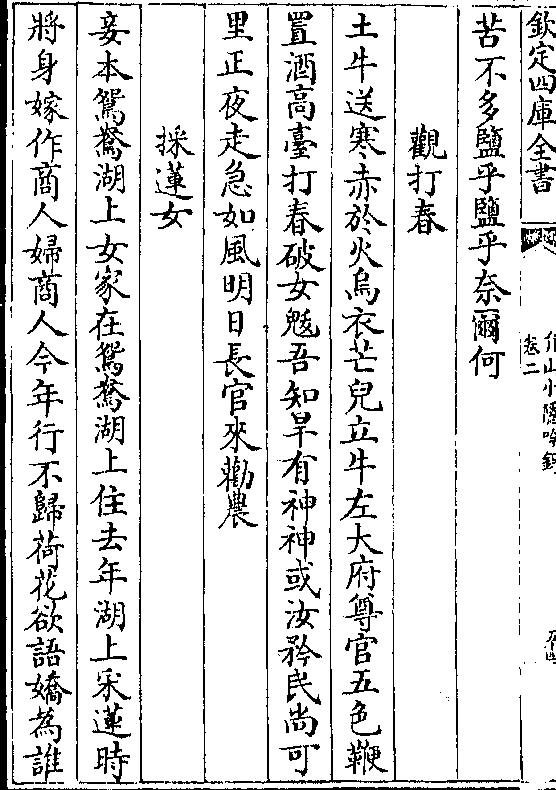 欽定四庫全書
卷二
苦不多鹽乎鹽乎奈爾何
觀打春
土牛送寒赤於火烏衣芒兒立牛左大府尊官五色鞭
置酒高臺打春破女魃吾知旱有神神或汝矜民尚可
里正夜走急如風明日長官來勸農
採蓮女
妾本鴛鴦湖上女家在鴛鴦湖上住去年湖上采蓮時
將身嫁作商人婦商人今年行不歸荷花欲語嬌為誰